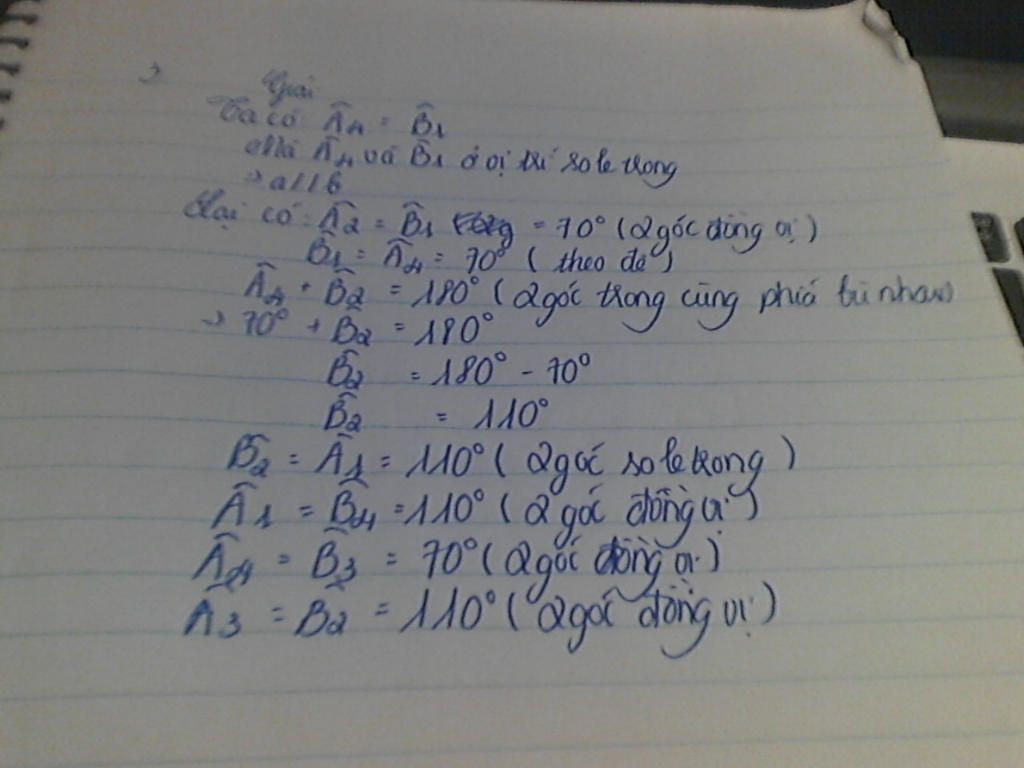 Giải
Ta có Â4 = B̂1
Mà Â4 và B̂1 ở vị trí so le trong
→ a//b
Lại có: Â2 = B̂1 = 70° (2 góc đồng vị)
B̂1 = Â4 = 70° (theo đề)
Â4 + B̂2 = 180° (2 góc trong cùng phía bù nhau)
→ 70° + B̂2 = 180°
B̂2 = 180° - 70°
B̂2 = 110°
B̂2 = Â1 = 110° (2 góc so le trong)
Â1 = B̂4 = 110° (2 góc đồng vị)
Â4 = B̂3 = 70° (2 góc đồng vị)
Â3 = B̂2 = 110° (2 góc đồng vị)